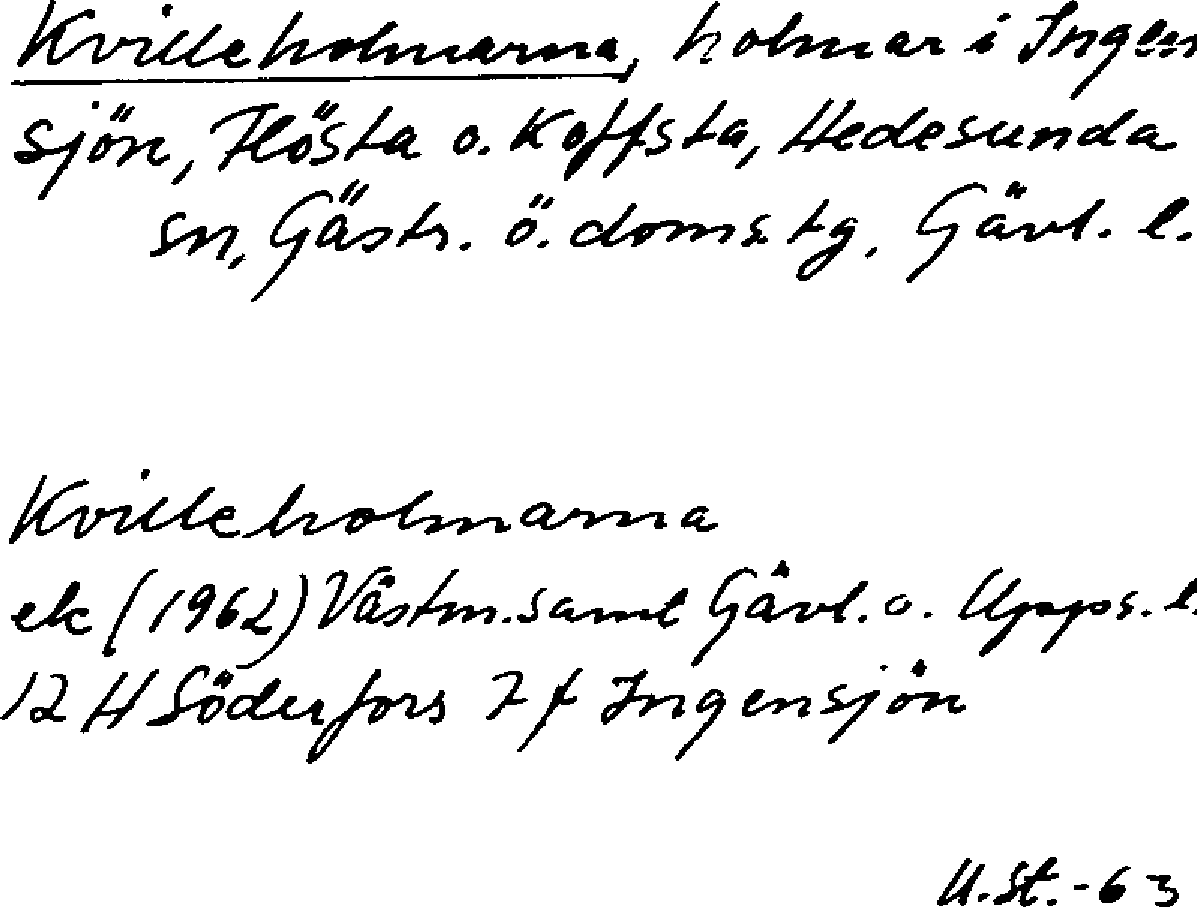 Kvilleholmarna, holmar i Ingen
sjön, Flösta o. Koffsta, Hedesunda
sn, Gästr. ö. doms.tg, Gävl. l.
Kvilleholmarna
ek (1962) Västm. saml Gävl. o. Upps. l.
12 H Söderfors 7 f Ingensjön
U.St.-63